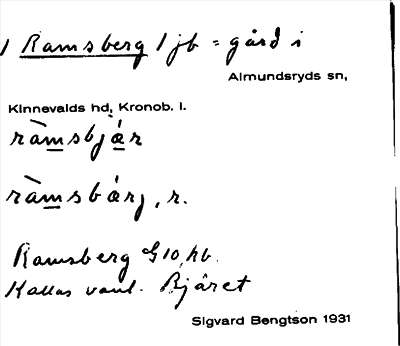 1 Ramsberg 1 jb = gård i
Almundsryds sn,
Kinnevalds hd, Kronob. l.
ràmsbjǽr
ràmsbárj, r.
Ramsberg G10, hb.
Kallas vanl. Bjäret
Sigvard Bengtson 1931